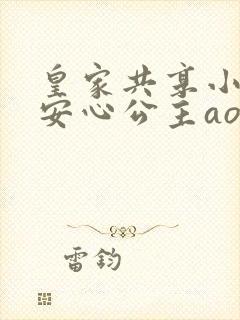 皇家共享小
安心公主ao
雷钧